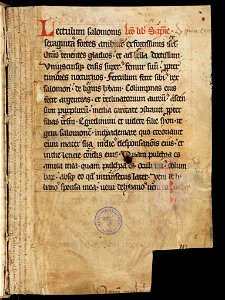 Lectulum salomonis
sexaginta fortes ambiunt ex fortissimis isrl
omnes tenentes gladios et ad bella doctissimi
Uniuscuiusq; ensis super femur suum propter
timores nocturnos Ferculum fecit sibi rex
salomon de lignis libani Columpnas eius
fecit argenteas et reclinatorium aureum ascen
sum purpureum media caritate
filias ierlm Egredimini et uidete filie syon re
gem salomonem in diademate quo coronauit
eum mater sua in die desponsationis eius et
in die leticie cordis eius Quam pulchra es
amica mea quam pulchra es oculi tui colum
bar absq; eo qd intrinsecus latet Veni de li
bano sponsa mea ueni de libano ueni